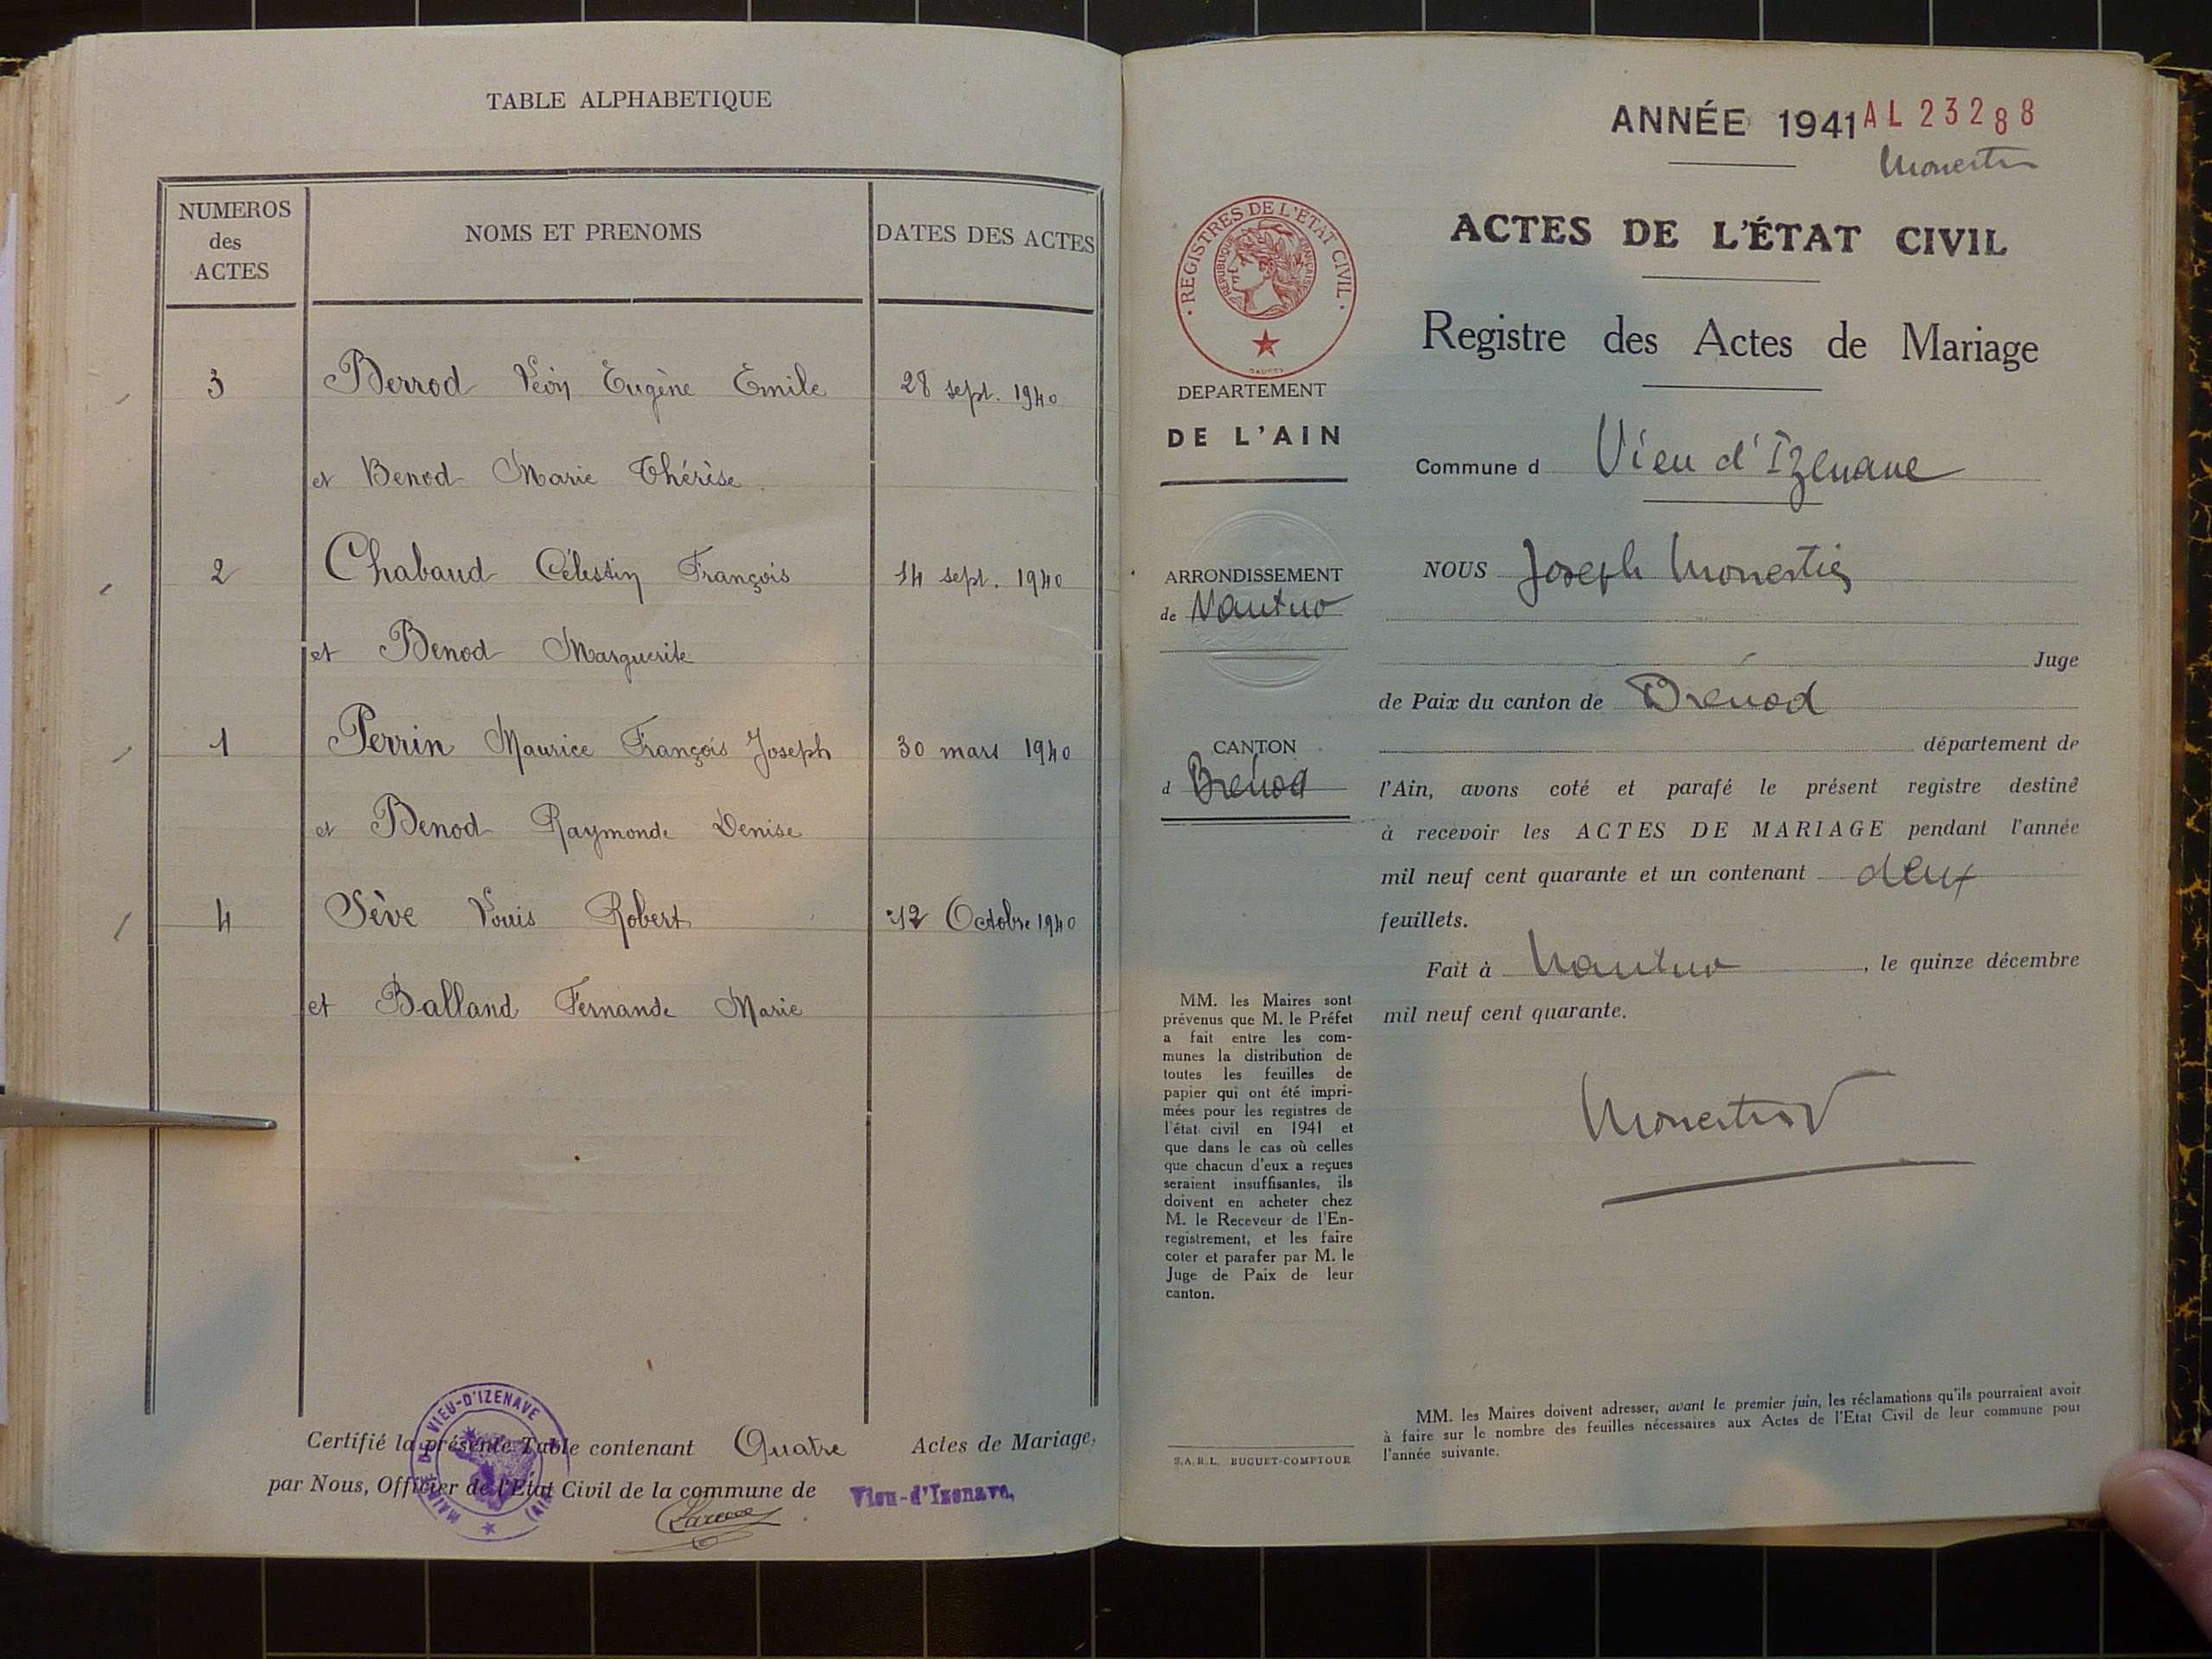 TABLE ALPHABETIQUE
NUMEROS
des
ACTES
NOMS ET PRENOMS
DATES DES ACTES
3 Berrod Léon Eugène Emile 28 sept. 1940
et Benod Marie Thérèse
2 Chabaud Célestin François 14 sept. 1940
et Benod Marguerite
1 Perrin Maurice François Joseph 30 mars 1940
et Benod Raymonde Denise
4 Sève Louis Robert 12 Octobre 1940
et Balland Fernande Marie
Certifié la présente Table contenant Quatre Actes de Mariage,
par Nous, Officier de l'Etat Civil de la commune de Vieu-d'Izenave.
MAIRIE DE VIEU-D'IZENAVE
(AIN)
ANNÉE 1941 AL 23288
REGISTRES DE L'ETAT CIVIL
REPUBLIQUE FRANÇAISE
DEPARTEMENT
DE L'AIN
ARRONDISSEMENT
de Nantua
CANTON
d Brénod
MM. les Maires sont
prévenus que M. le Préfet
a fait entre les com-
munes la distribution de
toutes les feuilles de
papier qui ont été impri-
mées pour les registres de
l'état civil en 1941 et
que dans le cas où celles
que chacun d'eux a reçues
seraient insuffisantes, ils
doivent en acheter chez
M. le Receveur de l'En-
registrement, et les faire
coter et parafer par M. le
Juge de Paix de leur
canton.
S.A.R.L. BUGUET-COMPTOUR
ACTES DE L'ÉTAT CIVIL
Registre des Actes de Mariage
Commune d Vieu d'Izenave
NOUS Joseph Monestier
Juge
de Paix du canton de Brénod
département de
l'Ain, avons coté et parafé le présent registre destiné
à recevoir les ACTES DE MARIAGE pendant l'année
mil neuf cent quarante et un contenant deux
feuillets.
Fait à Nantua, le quinze décembre
mil neuf cent quarante.
Monestier
MM. les Maires doivent adresser, avant le premier juin, les réclamations qu'ils pourraient avoir
à faire sur le nombre des feuilles nécessaires aux Actes de l'Etat Civil de leur commune pour
l'année suivante.